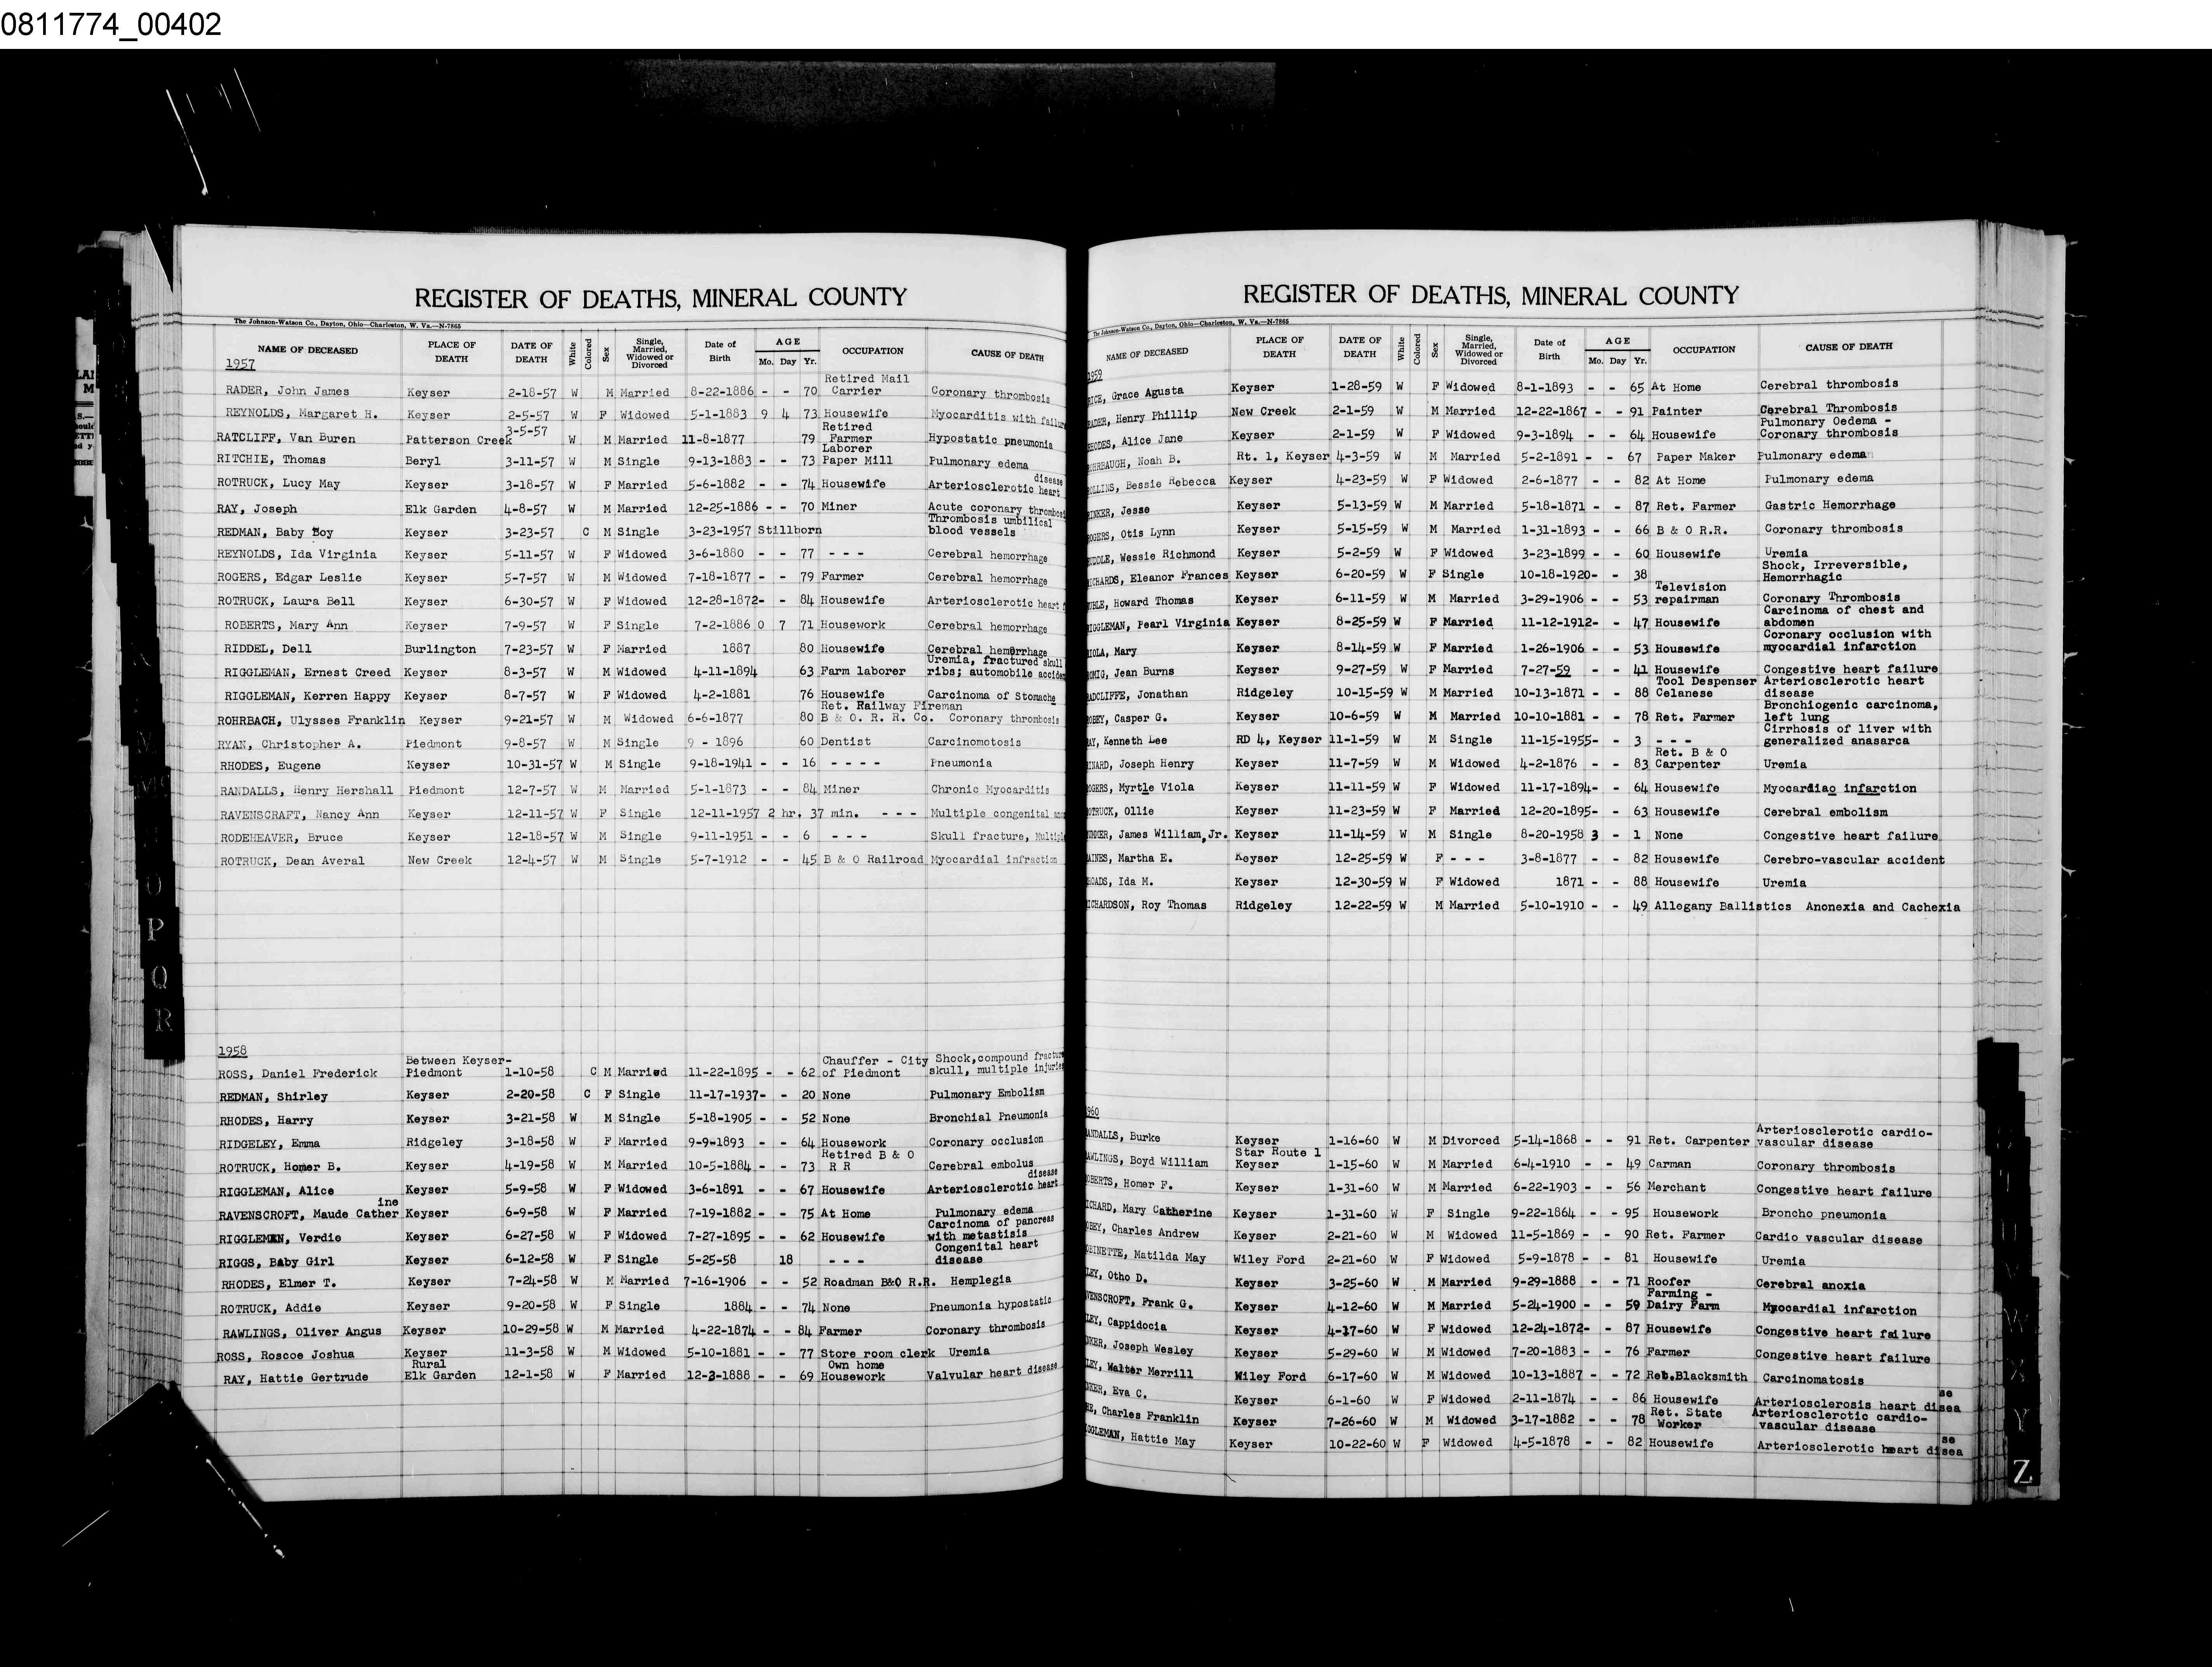 0811774_00402
REGISTER OF DEATHS, MINERAL COUNTY
The Johnson-Watson Co., Dayton, Ohio—Charleston, W. Va.—N-7865
NAME OF DECEASED PLACE OF DEATH DATE OF DEATH White Colored Sex Single, Married, Widowed or Divorced Date of Birth AGE Mo. Day Yr. OCCUPATION CAUSE OF DEATH
1957
RADER, John James Keyser 2-18-57 W M Married 8-22-1886 - - 70 Retired Mail Carrier Coronary thrombosis
REYNOLDS, Margaret H. Keyser 2-5-57 W F Widowed 5-1-1883 9 4 73 Housewife Myocarditis with failure
RATCLIFF, Van Buren Patterson Creek 3-5-57 W M Married 11-8-1877 79 Retired Farmer Hypostatic pneumonia
RITCHIE, Thomas Beryl 3-11-57 W M Single 9-13-1883 - - 73 Laborer Paper Mill Pulmonary edema
ROTRUCK, Lucy May Keyser 3-18-57 W F Married 5-6-1882 - - 74 Housewife Arteriosclerotic heart disease
RAY, Joseph Elk Garden 4-8-57 W M Married 12-25-1886 - - 70 Miner Acute coronary
REDMAN, Baby Boy Keyser 3-23-57 C M Single 3-23-1957 Stillborn Thrombosis umbilical blood vessels
REYNOLDS, Ida Virginia Keyser 5-11-57 W F Widowed 3-6-1880 - - 77 - - - Cerebral hemorrhage
ROGERS, Edgar Leslie Keyser 5-7-57 W M Widowed 7-18-1877 - - 79 Farmer Cerebral hemorrhage
ROTRUCK, Laura Bell Keyser 6-30-57 W F Widowed 12-28-1872- - 84 Housewife Arteriosclerotic heart
ROBERTS, Mary Ann Keyser 7-9-57 W F Single 7-2-1886 0 7 71 Housework Cerebral hemorrhage
RIDDEL, Dell Burlington 7-23-57 W F Married 1887 80 Housewife Cerebral hemorrhage
RIGGLEMAN, Ernest Creed Keyser 8-3-57 W M Widowed 4-11-1894 63 Farm laborer Uremia, fractured skull ribs; automobile
RIGGLEMAN, Kerren Happy Keyser 8-7-57 W F Widowed 4-2-1881 76 Housewife Carcinoma of Stomache
ROHRBACH, Ulysses Franklin Keyser 9-21-57 W M Widowed 6-6-1877 80 Ret. Railway Fireman B & O. R. R. Co. Coronary thrombosis
RYAN, Christopher A. Piedmont 9-8-57 W M Single 9 - 1896 60 Dentist Carcinomotosis
RHODES, Eugene Keyser 10-31-57 W M Single 9-18-1941 - - 16 - - - - Pneumonia
RANDALLS, Henry Hershall Piedmont 12-7-57 W M Married 5-1-1873 - - 84 Miner Chronic Myocarditis
RAVENSCRAFT, Nancy Ann Keyser 12-11-57 W F Single 12-11-1957 2 hr. 37 min. - - - Multiple congenital
RODEHEAVER, Bruce Keyser 12-18-57 W M Single 9-11-1951 - - 6 - - - Skull fracture,
ROTRUCK, Dean Averal New Creek 12-4-57 W M Single 5-7-1912 - - 45 B & O Railroad Myocardial infraction
1958
ROSS, Daniel Frederick Between Keyser-Piedmont 1-10-58 C M Married 11-22-1895 - - 62 Chauffer - City of Piedmont Shock,compound fracture skull, multiple injuries
REDMAN, Shirley Keyser 2-20-58 C F Single 11-17-1937- - 20 None Pulmonary Embolism
RHODES, Harry Keyser 3-21-58 W M Single 5-18-1905 - - 52 None Bronchial Pneumonia
RIDGELEY, Emma Ridgeley 3-18-58 W F Married 9-9-1893 - - 64 Housework Coronary occlusion
ROTRUCK, Homer B. Keyser 4-19-58 W M Married 10-5-1884 - - 73 Retired B & O R R Cerebral embolus
RIGGLEMAN, Alice Keyser 5-9-58 W F Widowed 3-6-1891 - - 67 Housewife Arteriosclerotic heart disease
RAVENSCROFT, Maude Catherine Keyser 6-9-58 W F Married 7-19-1882 - - 75 At Home Pulmonary edema
RIGGLEMAN, Verdie Keyser 6-27-58 W F Widowed 7-27-1895 - - 62 Housewife Carcinoma of pancreas with metastisis
RIGGS, Baby Girl Keyser 6-12-58 W F Single 5-25-58 18 - - - Congenital heart disease
RHODES, Elmer T. Keyser 7-24-58 W M Married 7-16-1906 - - 52 Roadman B&O R.R. Hemplegia
ROTRUCK, Addie Keyser 9-20-58 W F Single 1884 - - 74 None Pneumonia hypostatic
RAWLINGS, Oliver Angus Keyser 10-29-58 W M Married 4-22-1874 - - 84 Farmer Coronary thrombosis
ROSS, Roscoe Joshua Keyser 11-3-58 W M Widowed 5-10-1881 - - 77 Store room clerk Uremia
RAY, Hattie Gertrude Rural Elk Garden 12-1-58 W F Married 12-3-1888 - - 69 Own home Housework Valvular heart disease
M
O
P
Q
R
REGISTER OF DEATHS, MINERAL COUNTY
The Johnson-Watson Co., Dayton, Ohio—Charleston, W. Va.—N-7865
NAME OF DECEASED PLACE OF DEATH DATE OF DEATH White Colored Sex Single, Married, Widowed or Divorced Date of Birth AGE Mo. Day Yr. OCCUPATION CAUSE OF DEATH
1959
RICE, Grace Agusta Keyser 1-28-59 W F Widowed 8-1-1893 - - 65 At Home Cerebral thrombosis
RADER, Henry Phillip New Creek 2-1-59 W M Married 12-22-1867 - - 91 Painter Cerebral Thrombosis
RHODES, Alice Jane Keyser 2-1-59 W F Widowed 9-3-1894 - - 64 Housewife Pulmonary Oedema - Coronary thrombosis
ROHRBAUGH, Noah B. Rt. 1, Keyser 4-3-59 W M Married 5-2-1891 - - 67 Paper Maker Pulmonary edema
ROLLINS, Bessie Rebecca Keyser 4-23-59 W F Widowed 2-6-1877 - - 82 At Home Pulmonary edema
RINKER, Jesse Keyser 5-13-59 W M Married 5-18-1871 - - 87 Ret. Farmer Gastric Hemorrhage
ROGERS, Otis Lynn Keyser 5-15-59 W M Married 1-31-1893 - - 66 B & O R.R. Coronary thrombosis
RUDDLE, Wessie Richmond Keyser 5-2-59 W F Widowed 3-23-1899 - - 60 Housewife Uremia
RICHARDS, Eleanor Frances Keyser 6-20-59 W F Single 10-18-1920- - 38 Shock, Irreversible, Hemorrhagic
RUBLE, Howard Thomas Keyser 6-11-59 W M Married 3-29-1906 - - 53 Television repairman Coronary Thrombosis
RIGGLEMAN, Pearl Virginia Keyser 8-25-59 W F Married 11-12-1912- - 47 Housewife Carcinoma of chest and abdomen
RIOLA, Mary Keyser 8-14-59 W F Married 1-26-1906 - - 53 Housewife Coronary occlusion with myocardial infarction
ROMIG, Jean Burns Keyser 9-27-59 W F Married 7-27-59 - - 41 Housewife Congestive heart failure
RADCLIFFE, Jonathan Ridgeley 10-15-59 W M Married 10-13-1871 - - 88 Tool Despenser Celanese Arteriosclerotic heart disease
ROBEY, Casper G. Keyser 10-6-59 W M Married 10-10-1881 - - 78 Ret. Farmer Bronchiogenic carcinoma, left lung
RAY, Kenneth Lee RD 4, Keyser 11-1-59 W M Single 11-15-1955- - 3 - - - Cirrhosis of liver with generalized anasarca
RINARD, Joseph Henry Keyser 11-7-59 W M Widowed 4-2-1876 - - 83 Ret. B & O Carpenter Uremia
ROGERS, Myrtle Viola Keyser 11-11-59 W F Widowed 11-17-1894- - 64 Housewife Myocardiao infarction
ROTRUCK, Ollie Keyser 11-23-59 W F Married 12-20-1895- - 63 Housewife Cerebral embolism
James William,Jr. Keyser 11-14-59 W M Single 8-20-1958 3 - 1 None Congestive heart failure
RAINES, Martha E. Keyser 12-25-59 W F - - - 3-8-1877 - - 82 Housewife Cerebro-vascular accident
RHOADS, Ida M. Keyser 12-30-59 W F Widowed 1871 - - 88 Housewife Uremia
RICHARDSON, Roy Thomas Ridgeley 12-22-59 W M Married 5-10-1910 - - 49 Allegany Ballistics Anonexia and Cachexia
1960
RANDALLS, Burke Keyser 1-16-60 W M Divorced 5-14-1868 - - 91 Ret. Carpenter Arteriosclerotic cardio-vascular disease
RAWLINGS, Boyd William Star Route 1 Keyser 1-15-60 W M Married 6-4-1910 - - 49 Carman Coronary thrombosis
ROBERTS, Homer F. Keyser 1-31-60 W M Married 6-22-1903 - - 56 Merchant Congestive heart failure
RICHARD, Mary Catherine Keyser 1-31-60 W F Single 9-22-1864 - - 95 Housework Broncho pneumonia
ROBEY, Charles Andrew Keyser 2-21-60 W M Widowed 11-5-1869 - - 90 Ret. Farmer Cardio vascular disease
ROBINETTE, Matilda May Wiley Ford 2-21-60 W F Widowed 5-9-1878 - - 81 Housewife Uremia
LEY, Otho D. Keyser 3-25-60 W M Married 9-29-1888 - - 71 Roofer Cerebral anoxia
VENSCROFT, Frank G. Keyser 4-12-60 W M Married 5-24-1900 - - 59 Farming - Dairy Farm Myocardial infarction
LEY, Cappidocia Keyser 4-17-60 W F Widowed 12-24-1872- - 87 Housewife Congestive heart failure
NKER, Joseph Wesley Keyser 5-29-60 W M Widowed 7-20-1883 - - 76 Farmer Congestive heart failure
LEY, Walter Merrill Wiley Ford 6-17-60 W M Widowed 10-13-1887 - - 72 Ret.Blacksmith Carcinomatosis
NKER, Eva C. Keyser 6-1-60 W F Widowed 2-11-1874 - - 86 Housewife Arteriosclerosis heart disease
Charles Franklin Keyser 7-26-60 W M Widowed 3-17-1882 - - 78 Ret. State Worker Arteriosclerotic cardio-vascular disease
GGLEMAN, Hattie May Keyser 10-22-60 W F Widowed 4-5-1878 - - 82 Housewife Arteriosclerotic heart disease
W
X
Y
Z